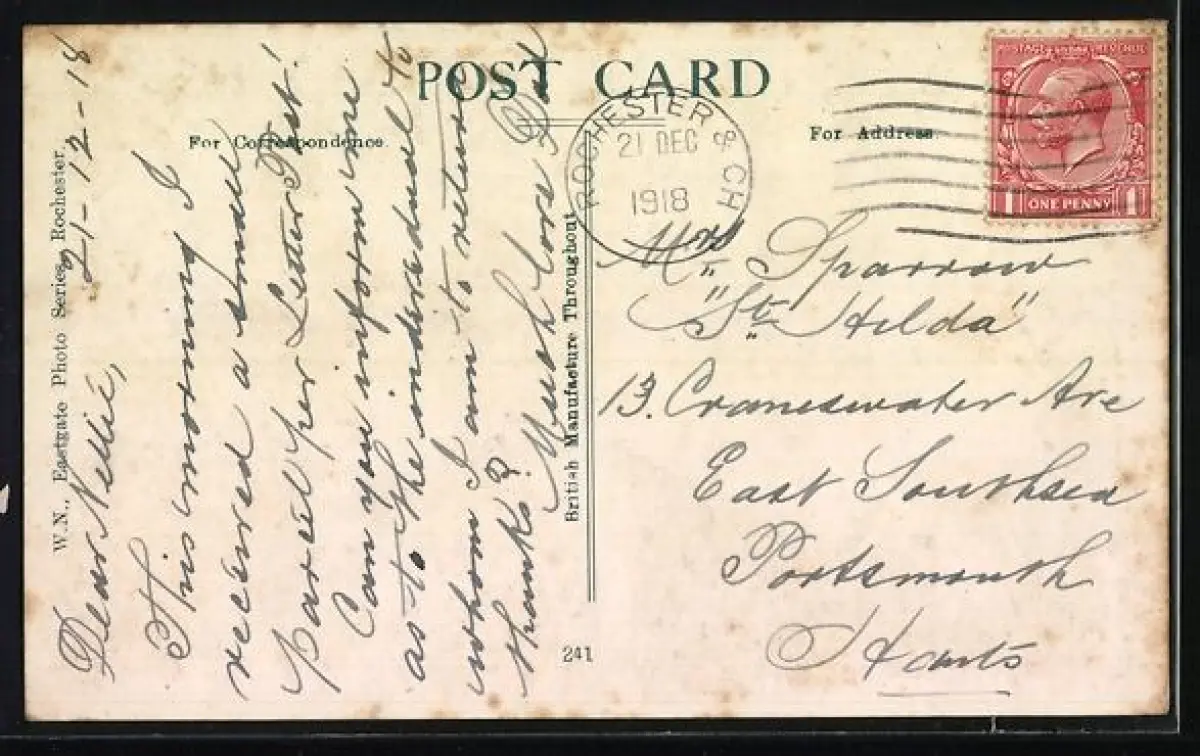 POST CARD
For Correspondence.
For Address.
W.N., Eastgate Photo Series, Rochester.
British Manufacture Throughout
241
POSTAGE REVENUE
1 ONE PENNY 1
ROCHESTER & CH
21 DEC
1918
21-12-18
Dear Nellie,
This morning I
received a small
parcel per Letter Post!
Can you inform me
as to the individual to
whom I am to return
thanks?
Much love
Mrs Sparrow
"St Hilda"
13. Craneswater Ave
East Southsea
Portsmouth
Hants